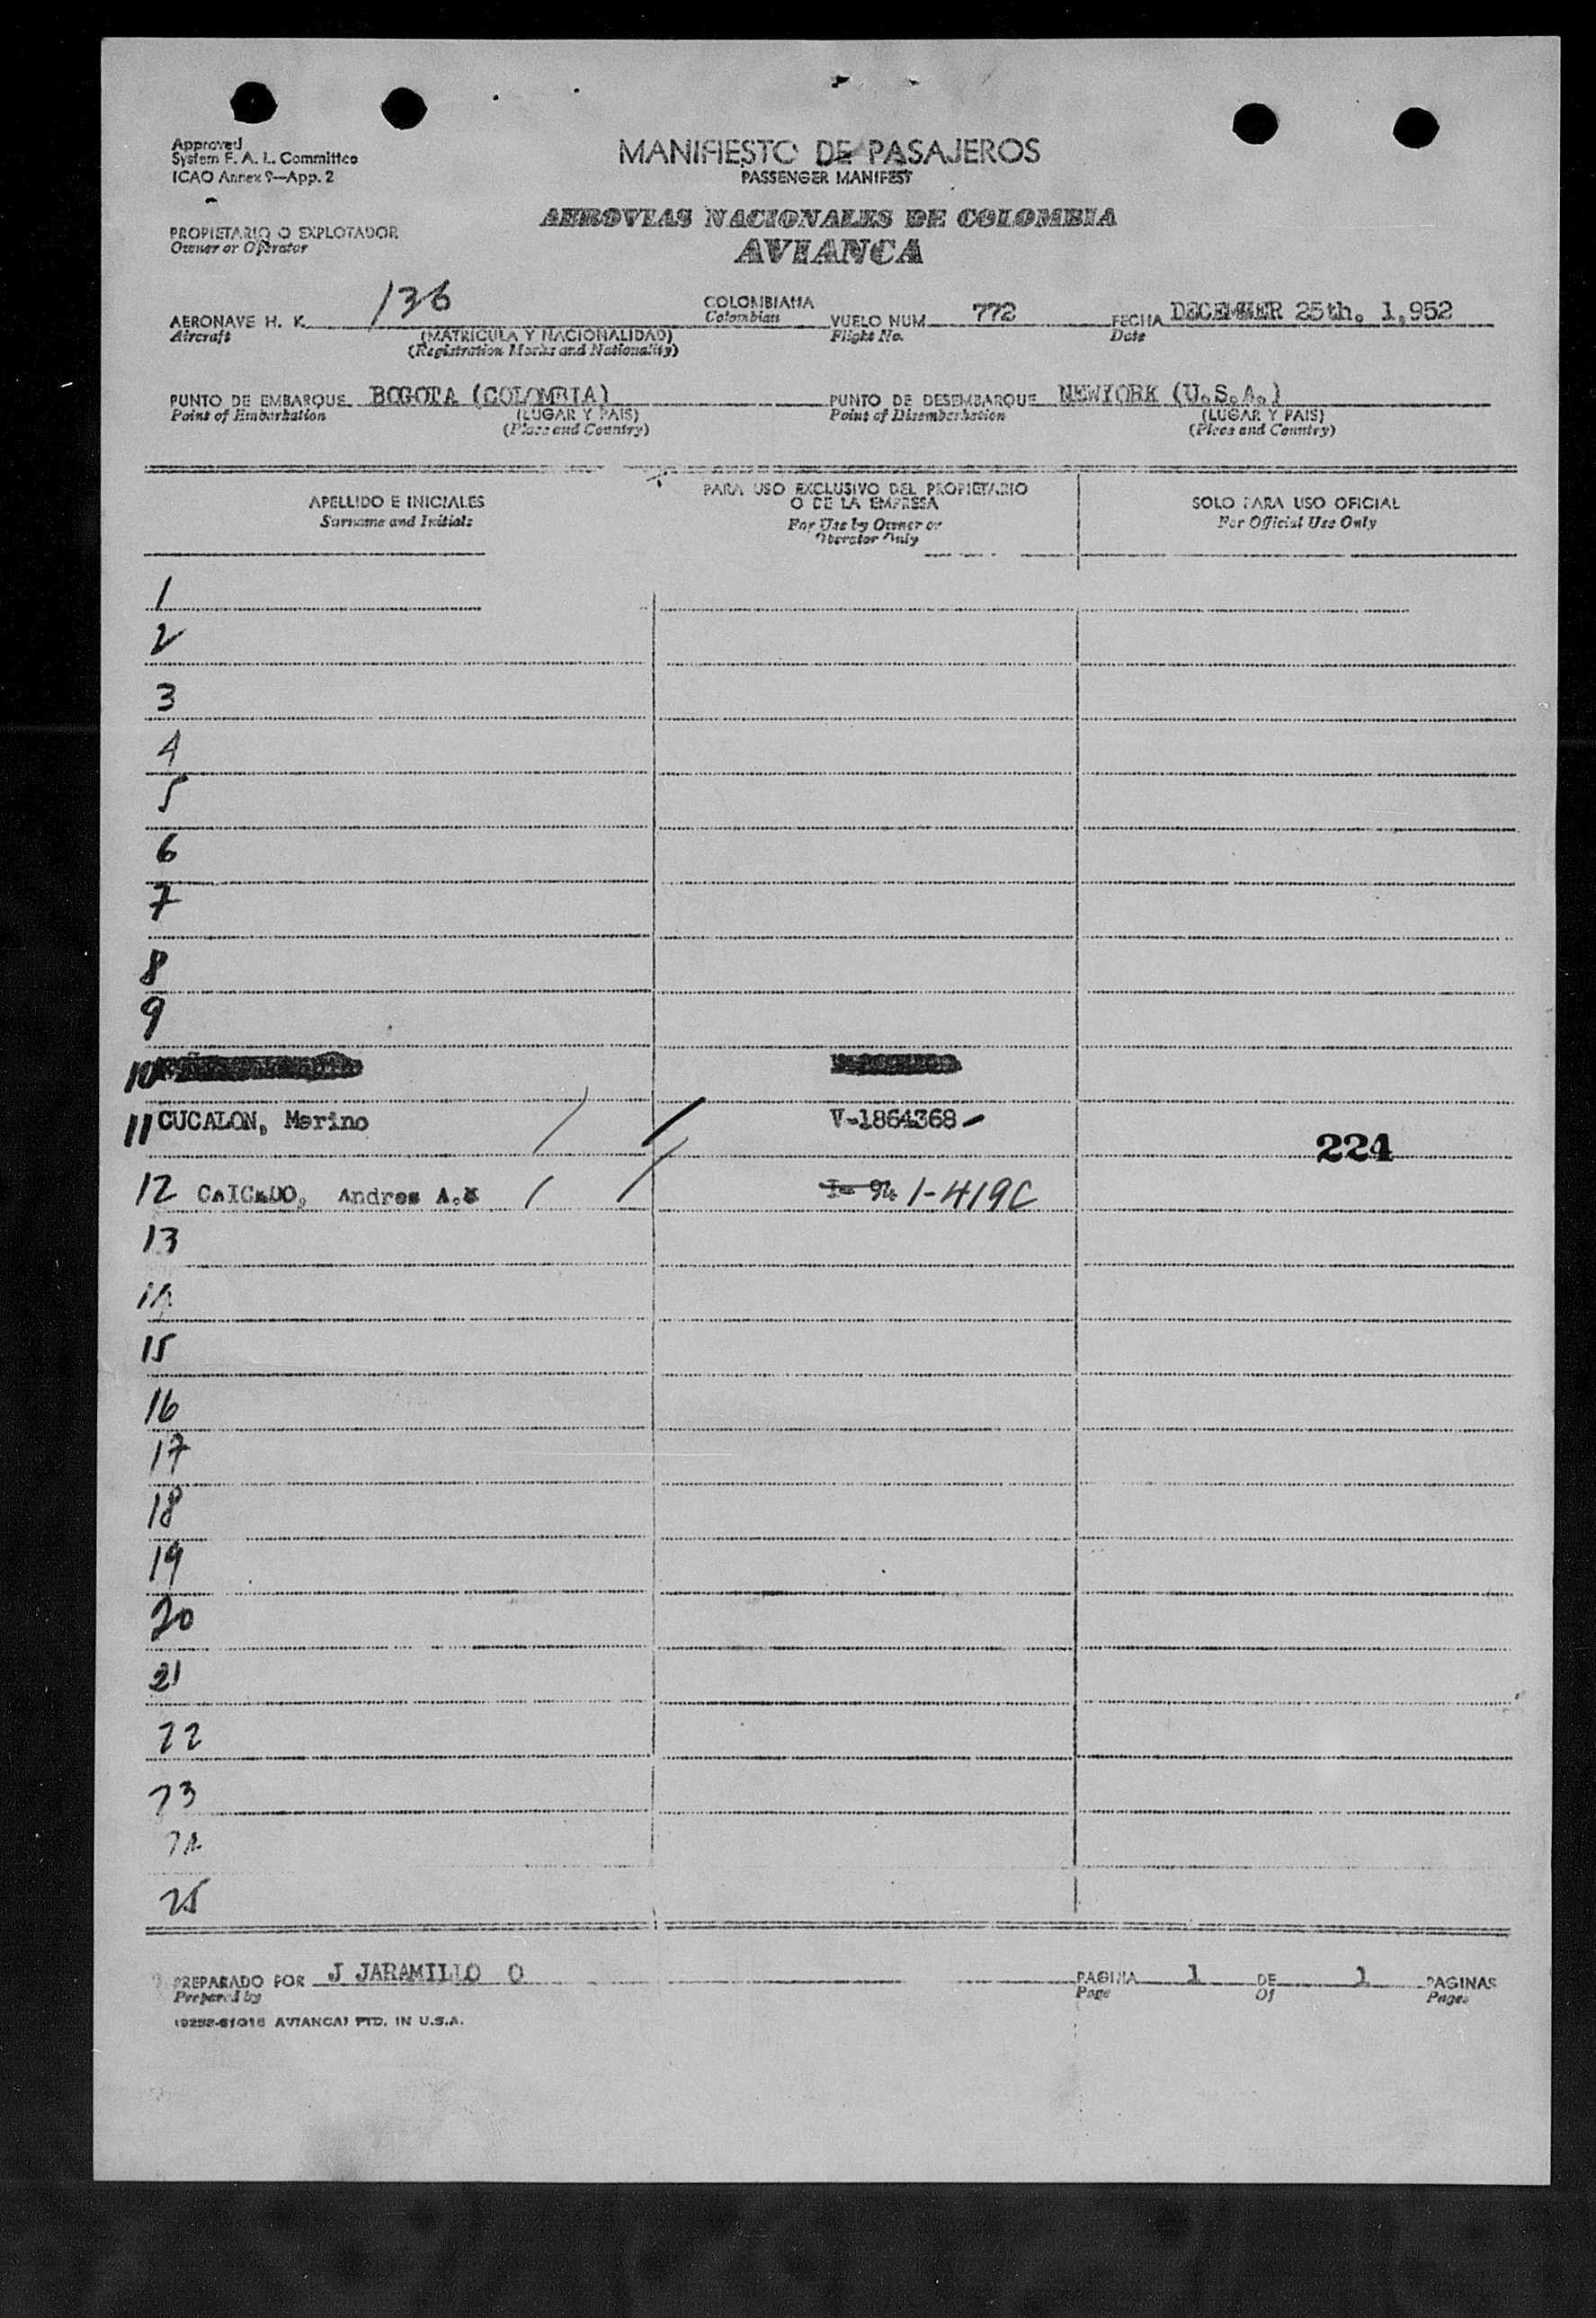 Approved
System F. A. L. Committee
ICAO Annex 9—App. 2
MANIFIESTO DE PASAJEROS
PASSENGER MANIFEST
PROPIETARIO O EXPLOTADOR
Owner or Operator
AEROVIAS NACIONALES DE COLOMBIA
AVIANCA
AERONAVE H. K. 136 COLOMBIANA VUELO NUM 772 FECHA DECEMBER 25th. 1,952
Aircraft (MATRICULA Y NACIONALIDAD) Colombian Flight No. Date
(Registration Marks and Nationality)
PUNTO DE EMBARQUE BOGOTA (COLOMBIA) PUNTO DE DESEMBARQUE NEWYORK (U.S.A.)
Point of Embarkation (LUGAR Y PAIS) Point of Disembarkation (LUGAR Y PAIS)
(Place and Country) (Place and Country)
APELLIDO E INICIALES
Surname and Initials
PARA USO EXCLUSIVO DEL PROPIETARIO
O DE LA EMPRESA
For Use by Owner or
Operator Only
SOLO PARA USO OFICIAL
For Official Use Only
1
2
3
4
5
6
7
8
9
10
11 CUCALON, Marino V-1864368
224
12 CAICEDO, Andres A. I- 94 1-419C
13
14
15
16
17
18
19
20
21
22
23
24
25
PREPARADO POR J JARAMILLO O PAGINA 1 DE 1 PAGINAS
Prepared by Page Of Pages
AVIANCA) PTD. IN U.S.A.